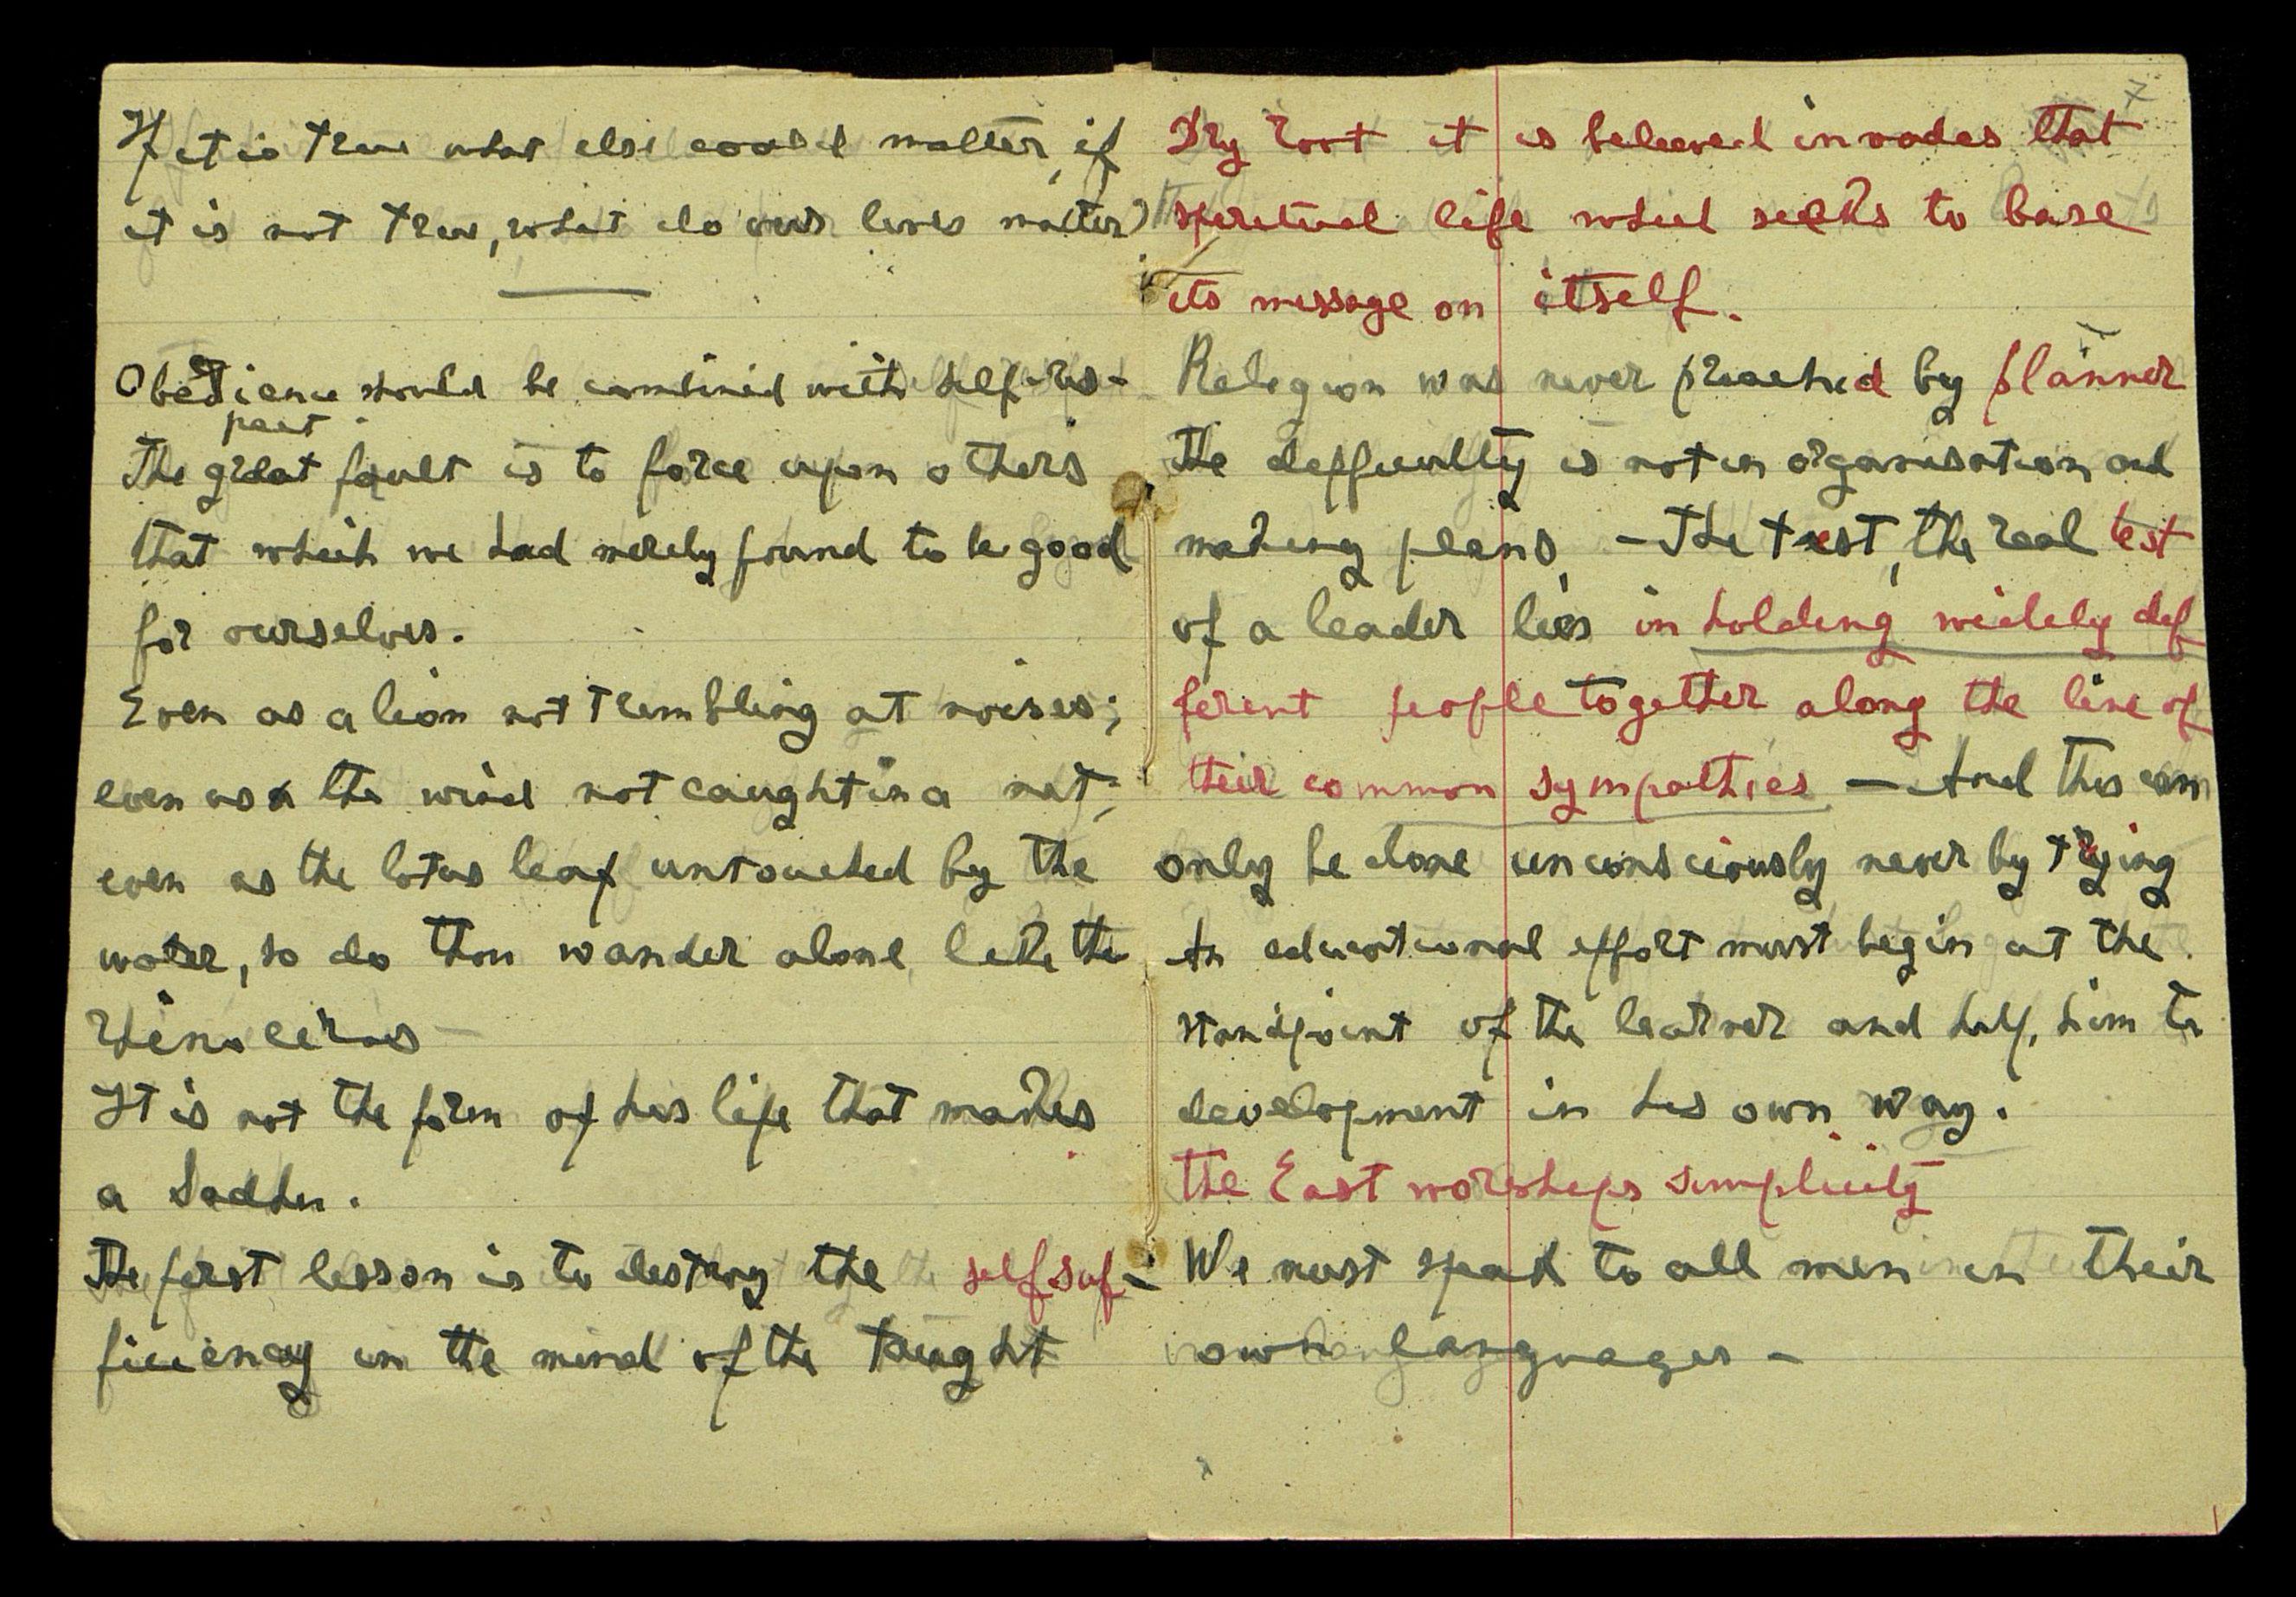 If it is true what else could matter, if
it is not true, what do our lives matter?
Obedience should be combined with self-res-
pect.
The great fault is to force upon others
that which we had merely found to be good
for ourselves.
Even as a lion not trembling at noises;
even as the wind not caught in a net;
even as the lotus leaf untouched by the
water, so do thou wander alone like the
rhinoceros —
It is not the form of his life that makes
a Sadhu.
The first lesson is to destroy the self suf-
ficiency in the mind of the taught
7
Dry root it is believed invades that
spiritual life which seeks to base
its message on itself.
Religion was never preached by planner
The difficulty is not in organisation and
making plans, — The test, the real test
of a leader lies in holding widely dif
ferent people together along the line of
their common sympathies — And this can
only be done unconsciously never by trying
An educational effort must begin at the
standpoint of the learner and help him to
development in his own way.
The East worships simplicity
We must speak to all men in their
own languages —